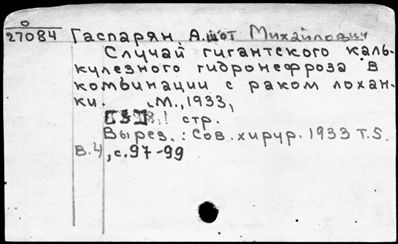 О
27084 Гаспарян А.шот Михайлович
Случай гигантского каль-
кулезного гидронефроза в
комбинации с раком лохан-
ки. М., 1933,
стр.
Вырез.: Сов. хирур. 1933 Т.5.
В.4, с.97-99